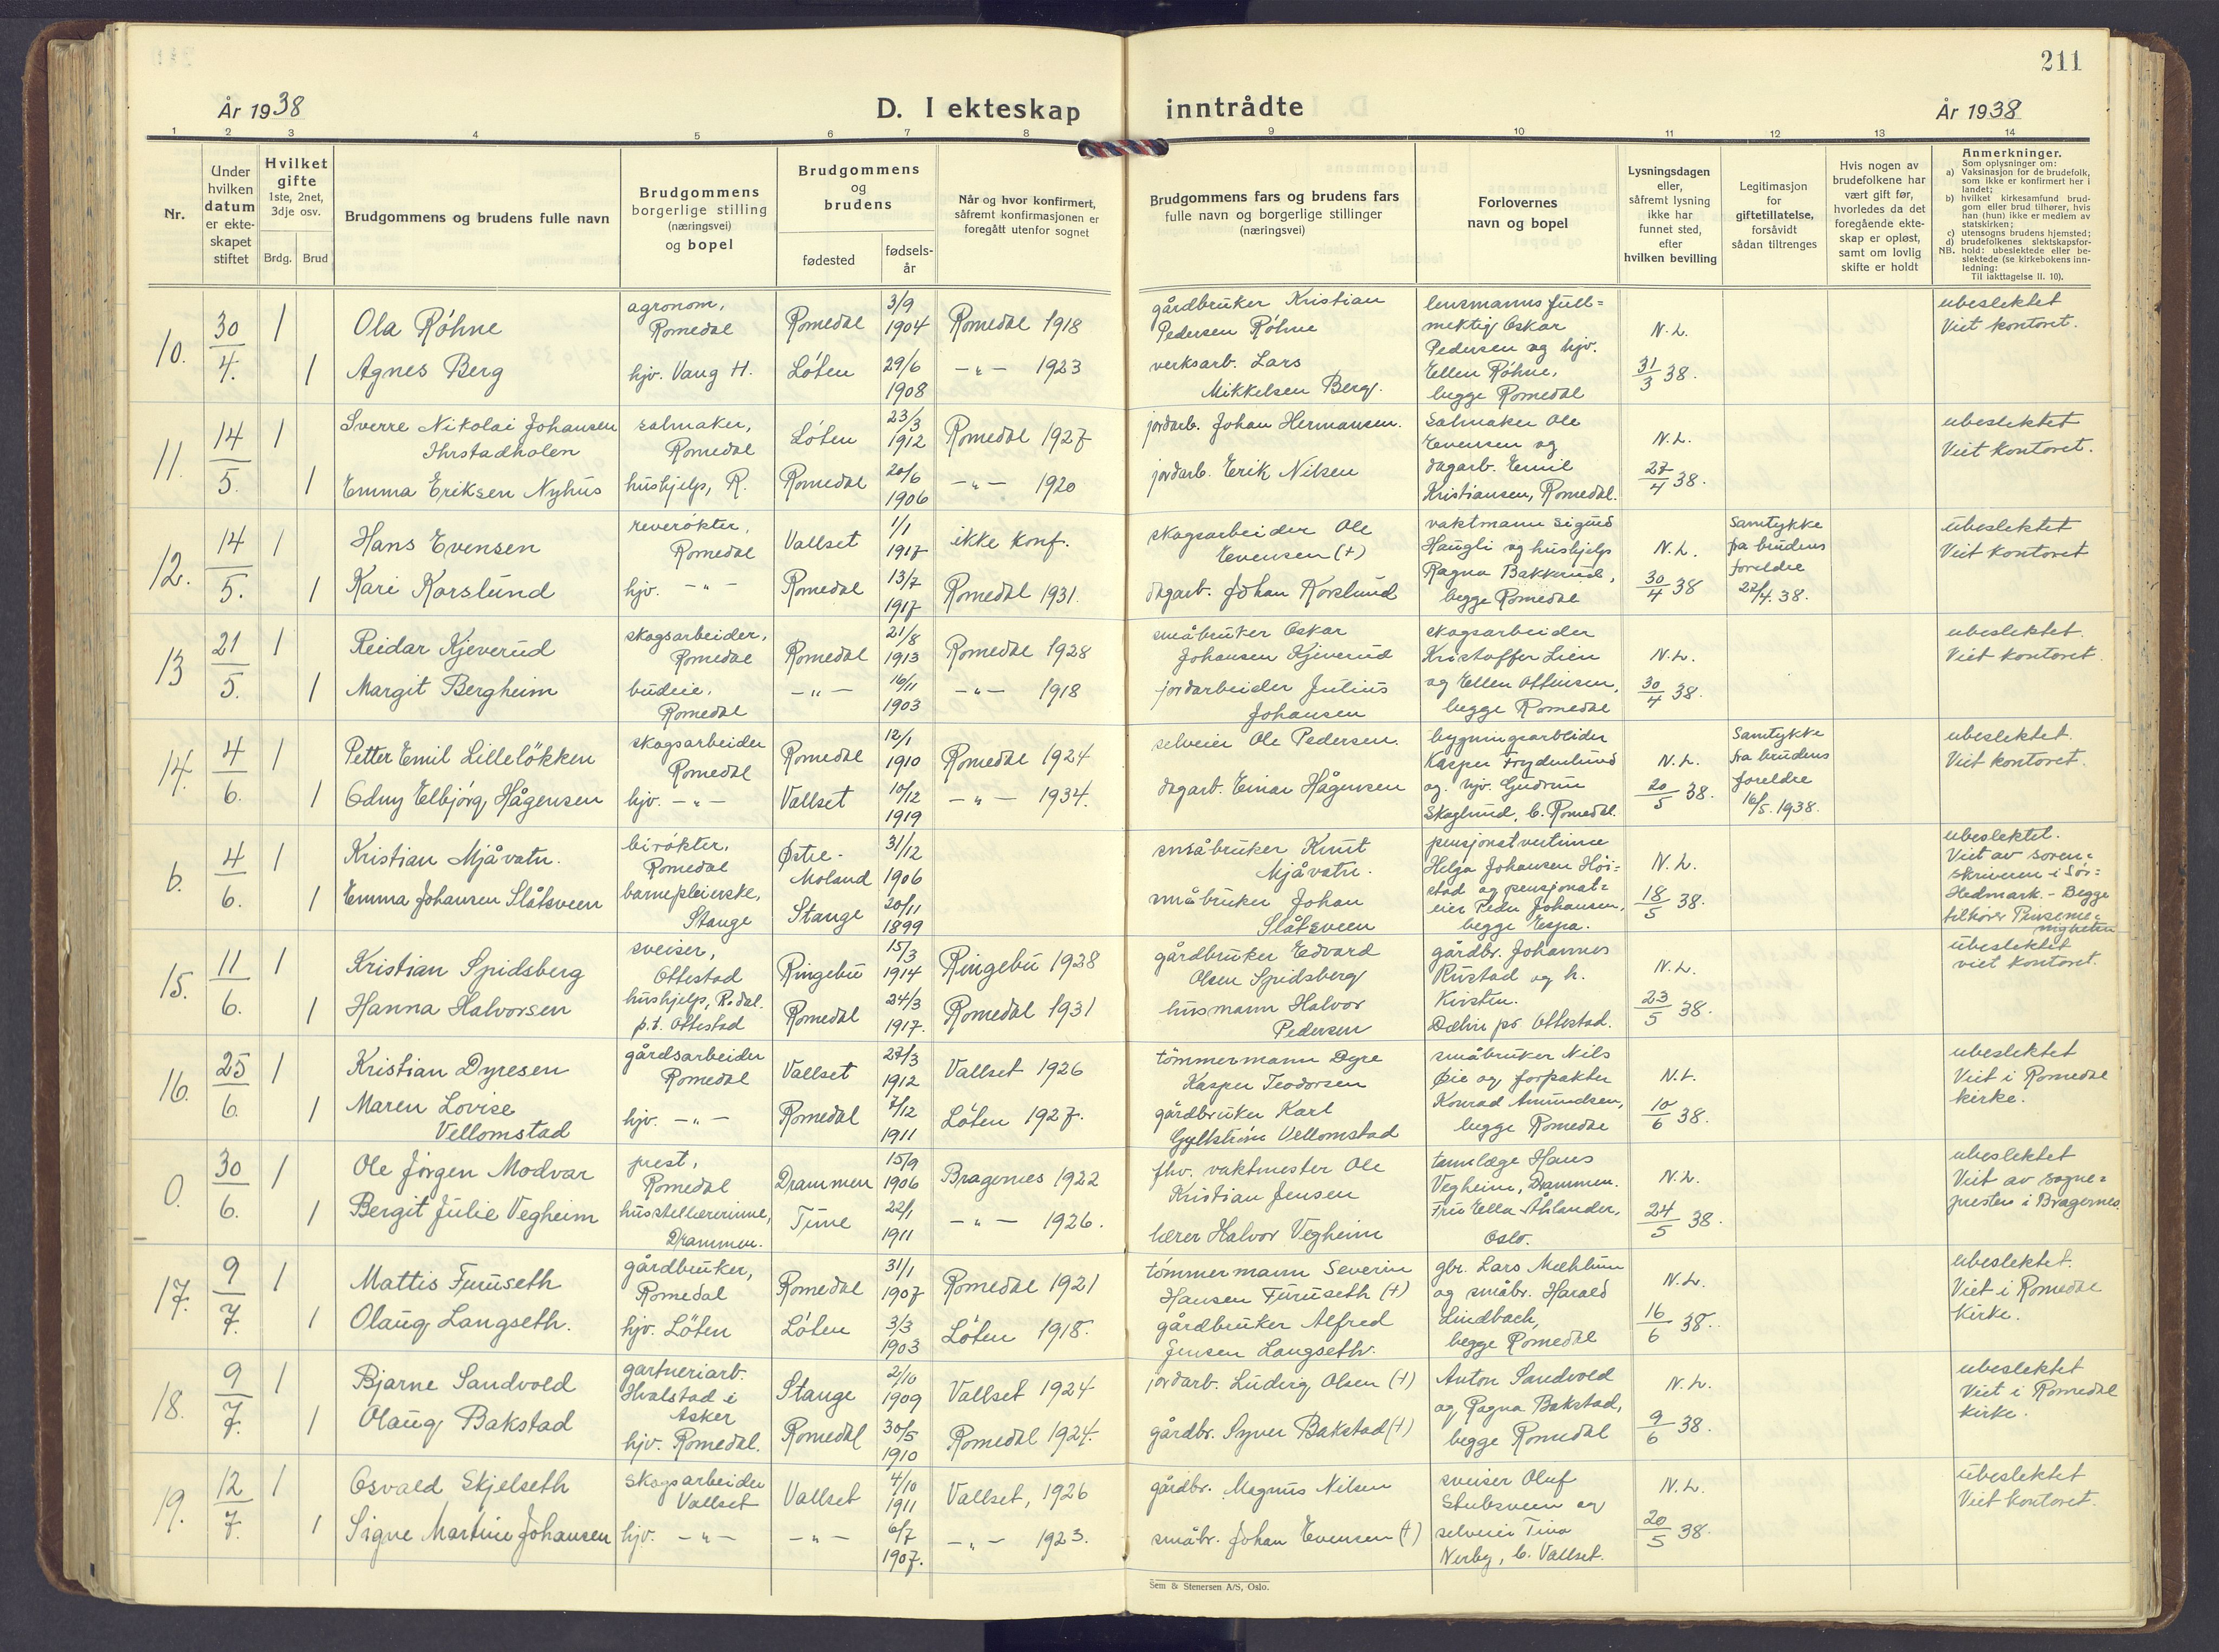 211
År 1938
D. I ekteskap inntrådte
År 1938
1 2 3 4 5 6 7 8 9 10 11 12 13 14
Nr.
Under
hvilken
datum
er ekte-
skapet
stiftet
Hvilket
gifte
1ste, 2net,
3dje osv.
Brdg. Brud
Brudgommens og brudens fulle navn
Brudgommens
borgerlige stilling
(næringsvei)
og bopel
Brudgommens
og
brudens
fødested
fødsels-
år
Når og hvor konfirmert,
såfremt konfirmasjonen er
foregått utenfor sognet
Brudgommens fars og brudens fars
fulle navn og borgerlige stillinger
(næringsvei)
Forlovernes
navn og bopel
Lysningsdagen
eller,
såfremt lysning
ikke har
funnet sted,
efter
hvilken bevilling
Legitimasjon
for
giftetillatelse,
forsåvidt
sådan tiltrenges
Hvis nogen av
brudefolkene har
vært gift før,
hvorledes da det
foregående ekte-
skap er opløst,
samt om lovlig
skifte er holdt
Anmerkninger.
Som oplysninger om:
a) Vaksinasjon for de brudefolk,
som ikke er konfirmert her i
landet;
b) hvilket kirkesamfund brud-
gom eller brud tilhører, hvis
han (hun) ikke er medlem av
statskirken;
c) utensogns brudens hjemsted;
d) brudefolkenes slektskapsfor-
NB. hold: ubeslektede eller be-
slektede (se kirkebokens inn-
ledning:
Til iakttagelse II. 10).
10. 30/4. 1
Ola Röhne
agronom,
Romedal
Romedal
3/9
1904
Romedal 1918
gårdbruker Kristian
Pedersen Röhne
1
Agnes Berg
hjv. Vang H.
Löten
29/6
1908
-"- 1923
verksarb. Lars
Mikkelsen Berg.
lensmanns full=
mektig Oskar
Pedersen og hjv.
Ellen Röhne,
begge Romedal
N.L.
31/3 38.
ubeslektet
Viet kontoret.
11. 14/5. 1
Sverre Nikolai Johansen
Ihrstadholen
salmaker,
Romedal
Löten
23/3
1912
Romedal 1927
jordarb. Johan Hermansen.
1
Emma Eriksen Nyhus
hushjelp, R.
Romedal
20/6
1906
-"- 1920
jordarb. Erik Nilsen
Salmaker Ole
Evensen og
dagarb. Emil
Kristiansen, Romedal.
N.L.
27/4 38.
ubeslektet
Viet kontoret.
12. 14/5. 1
Hans Evensen
reverökter,
Romedal
Vallset
1/1
1917
ikke konf.
skogsarbeider Ole
Evensen (+)
1
Kari Korslund
hjv. -"-
Romedal
13/7
1917
Romedal 1931.
dagarb. Johan Korslund
vaktmann Sigurd
Haugli og hushjelp
Ragna Bakkerud,
begge Romedal
N.L.
30/4 38
Samtykke
fra brudens
foreldre
27/4. 38.
ubeslektet
Viet kontoret
13 21/5. 1
Reidar Kjeverud
skogsarbeider,
Romedal
Romedal
21/8
1913
Romedal 1928
småbruker Oskar
Johansen Kjeverud
1
Margit Bergheim
budeie,
Romedal
-"-
16/11
1903
-"- 1918
jordarbeider Julius
Johansen
skogsarbeider
Kristoffer Lien
og Ellen Ottensen,
begge Romedal
N.L.
30/4 38.
ubeslektet.
Viet kontoret.
14. 4/6. 1
Petter Emil Lillelökken
skogsarbeider
Romedal
Romedal
12/1
1910
Romedal 1924
selveier Ole Pedersen.
1
Odny Elbjörg Hågensen
hjv. -"-
Vallset
10/12
1919
-"- 1934.
dagarb. Einar Hågensen
bygningsarbeider
Kasper Frydenlund
og hjv. Gudrun
Skoglund, b. Romedal.
N.L.
20/5 38.
Samtykke
fra brudens
foreldre
16/5. 1938.
ubeslektet.
Viet kontoret.
b. 4/6. 1
Kristian Mjåvatn.
birökter,
Romedal
Østre-
Moland
31/12
1906
småbruker Knut
Mjåvatn.
1
Emma Johansen Slåtsveen
barnepleierske,
Stange
Stange
20/11
1899
småbruker Johan
Slåtsveen
pensjonatvertinne
Helga Johansen Höi=
stad og pensjonat=
eier Peder Johansen,
begge Espa.
N.L.
18/5 38.
ubeslektet.
Viet av soren=
skriveren i Sör=
Hedmark. - Begge
tilhörer Pinseme=
nigheten
15. 11/6. 1
Kristian Spidsberg
sveiser,
Ottestad
Ringebu
15/3
1914
Ringebu 1928
gårdbruker Edvard
Olsen Spidsberg
1
Hanna Halvorsen
hushjelp, R.dal.
p.t. Ottestad
Romedal
24/3
1917.
Romedal 1931
husmann Halvor
Pedersen
gårdbr. Johannes
Rustad og h.
Kirsten.
Dælin pr Ottestad.
N.L.
23/5 38.
ubeslektet
viet kontoret.
16. 25/6. 1
Kristian Dyresen
gårdsarbeider
Romedal
Vallset
27/3
1912
Vallset 1926
tömmermann Dyre
Kasper Teodorsen
1
Maren Lovise
Vellomstad
hjv. -"-
Romedal
7/12
1911
Löten 1927.
gårdbruker Karl
Gyltström Vellomstad
småbruker Nils
Øie og forpakter
Konrad Amundsen,
begge Romedal
N.L.
10/6 38.
ubeslektet
Viet i Romedal
kirke.
0. 30/6. 1
Ole Jörgen Modvar
prest,
Romedal
Drammen
15/9
1906
Bragernes 1922
fhv. vaktmester Ole
Kristian Jensen
1
Bergit Julie Vegheim
husstellærerinne,
Drammen.
Time
22/1
1911
-"- 1926.
lærer Halvor Vegheim
tannlæge Hans
Vegheim, Drammen.
Fru Ella Åhlander,
Oslo.
N.L.
24/5 38.
ubeslektet
Viet av sogne=
presten i Bragernes.
17. 9/7. 1
Mattis Furuseth
gårdbruker,
Romedal
Romedal
31/1
1907
Romedal 1921
tömmermann Severin
Hansen Furuseth (+)
1
Olaug Langseth.
hjv. Löten
Löten
3/3
1903
Löten 1918.
gårdbruker Alfred
Jensen Langseth.
gbr. Lars Mæhlum
og småbr. Harald
Lindbach,
begge Romedal
N.L.
16/6 38.
ubeslektet.
Viet i Romedal
Kirke.
18. 9/7. 1
Bjarne Sandvold
gartneriarb.
Hvalstad i
Asker
Stange
2/10
1909
Vallset 1924
jordarb. Ludvig Olsen (+)
1
Olaug Bakstad
hjv. Romedal.
Romedal
30/5
1910
Romedal 1924.
gårdbr. Syver Bakstad (+)
Anton Sandvold
og Ragna Bakstad,
begge Romedal
N.L.
9/6 38.
ubeslektet
Viet i Romedal
kirke.
19. 12/7. 1
Osvald Skjelseth
Skogsarbeider
Vallset
Vallset
4/10
1911
Vallset, 1926
gårdbr. Magnus Nilsen
1
Signe Martine Johansen
hjv. -"-
-"-
6/7
1907.
-"- 1923.
småbr. Johan Evensen (+)
sveiser Oluf
Stubsveen og
selveier Tina
Nerby, b. Vallset.
N.L.
20/5 38.
ubeslektet
Viet kontoret.
Sem & Stenersen A/S, Oslo.